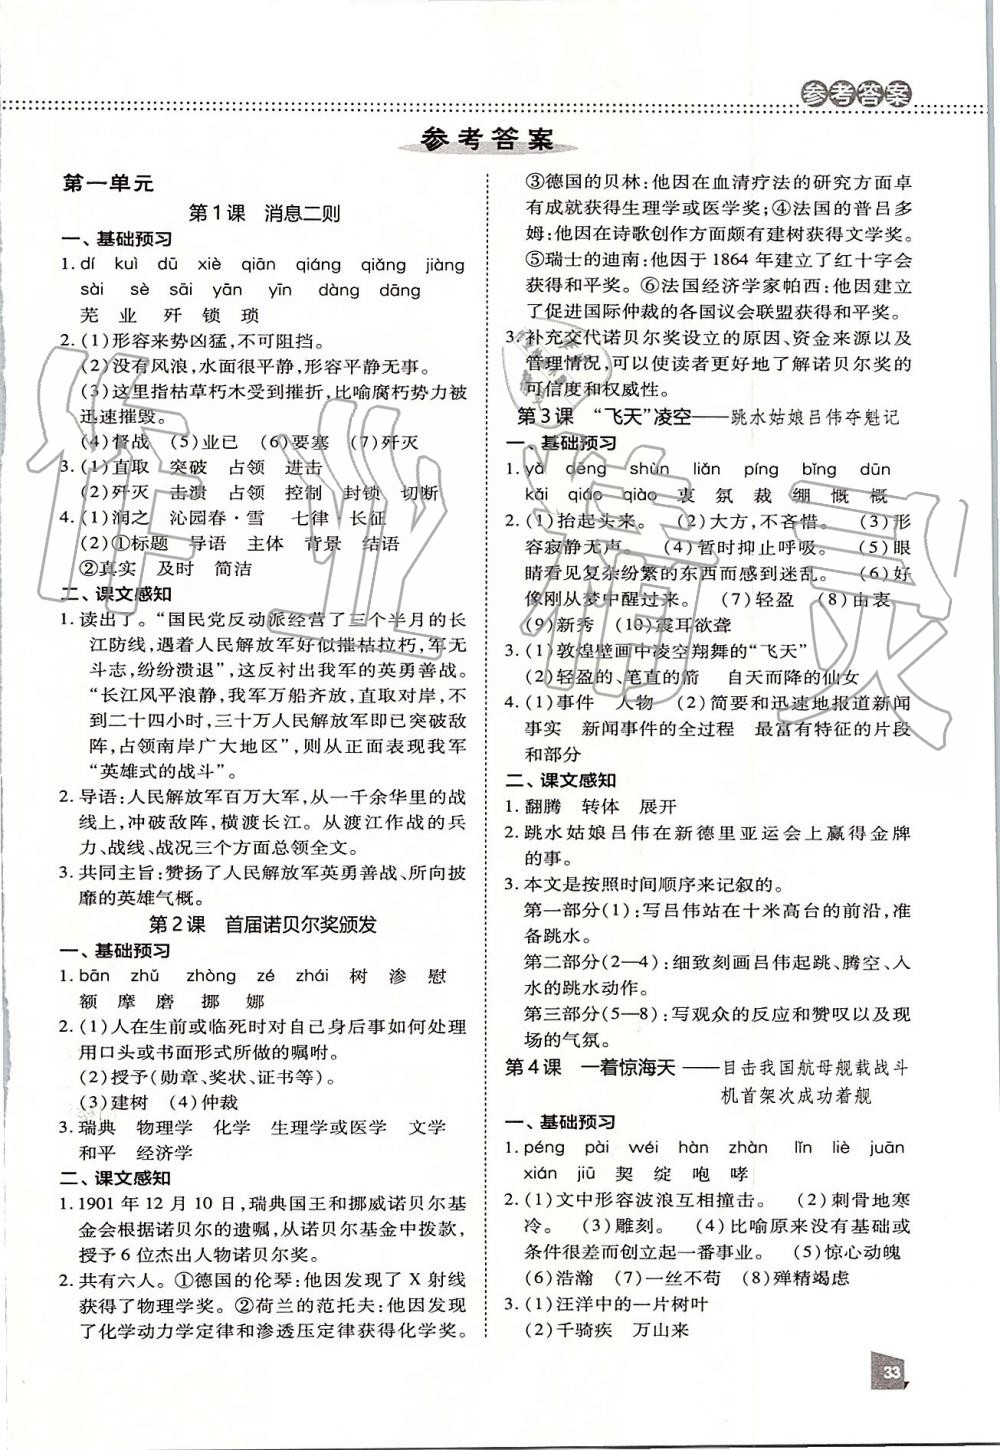 参考答案
参考答案
第一单元
第1课　消息二则
一、基础预习
1. dí　kuì　dū　xiè　qiān　qiáng　qiǎng　jiàng
sài　sè　sāi　yān　yīn　dàng　dāng
芜　业　歼　锁　琐
2. (1)形容来势凶猛,不可阻挡。
(2)没有风浪,水面很平静,形容平静无事。
(3)这里指枯草朽木受到强烈摧折,比喻腐朽势力被
迅速摧毁。
(4)督战　(5)业已　(6)要塞　(7)歼灭
3. (1)直取　突破　占领　进击
(2)歼灭　击溃　占领　控制　封锁　切断
4. (1)润之　沁园春·雪　七律　长征
(2)①标题　导语　主体　背景　结语
②真实　及时　简洁
二、课文感知
1. 读出了。“国民党反动派经营了三个半月的长
江防线,遇着人民解放军好似摧枯拉朽,军无
斗志,纷纷溃退”,这反衬出我军的英勇善战。
“长江风平浪静,我军万船齐放,直取对岸,不
到二十四小时,三十万人民解放军即已突破敌
阵,占领南岸广大地区”,则从正面表现我军
“英雄式的战斗”。
2. 导语:人民解放军百万大军,从一千余华里的战
线上,冲破敌阵,横渡长江。从渡江作战的兵
力、战线、战况三个方面总领全文。
3. 共同主旨:赞扬了人民解放军英勇善战、所向披
靡的英雄气概。
第2课　首届诺贝尔奖颁发
一、基础预习
1. bān　zhǔ　zhòng　zé　zhái　树　渗　慰
额　摩　磨　挪　娜
2. (1)人在生前或临死时对自己身后事如何处理
用口头或书面形式所做的嘱咐。
(2)授予(勋章、奖状、证书等)。
(3)建树　(4)仲裁
3. 瑞典　物理学　化学　生理学或医学　文学
和平　经济学
二、课文感知
1. 1901年12月10日,瑞典国王和挪威诺贝尔基
金会根据诺贝尔的遗嘱,从诺贝尔基金中拨款,
授予6位杰出人物诺贝尔奖。
2. 共有六人。①德国的伦琴:他因发现了X射线
获得了物理学奖。②荷兰的范托夫:他因发现
了化学动力学定律和渗透压定律获得化学奖。
③德国的贝林:他因在血清疗法的研究方面卓
有成就获得生理学或医学奖;④法国的普吕多
姆:他因在诗歌创作方面颇有建树获得文学奖。
⑤瑞士的迪南:他因于1864年建立了红十字会
获得和平奖。⑥法国经济学家帕西:他因创立
了促进国际仲裁的各国议会联盟获得和平奖。
3. 补充交代诺贝尔奖设立的原因、资金来源以及
管理情况,可以使读者更好地了解诺贝尔奖的
可信度和权威性。
第3课　“飞天”凌空——跳水姑娘吕伟夺魁记
一、基础预习
1. yǎ　dēng　shùn　liǎn　píng　bǐng　dūn
kǎi　qiáo　qiào　衷　氛　裁　绷　慨　概
2. (1)抬起头来。　(2)大方,不吝惜。　(3)形
容寂静无声。　(4)暂时抑止呼吸。　(5)眼
睛看见复杂纷繁的东西而感到迷乱。　(6)好
像刚从梦中醒过来。　(7)轻盈　(8)由衷
(9)新秀　(10)震耳欲聋
3. (1)敦煌壁画中凌空翔舞的“飞天”
(2)轻盈的、笔直的箭　自天而降的仙女
4. (1)事件　人物　(2)简要和迅速地报道新闻
事实　新闻事件的全过程　最富有特征的片段
和部分
二、课文感知
1. 翻腾　转体　展开
2. 跳水姑娘吕伟在新德里亚运会上赢得金牌
的事。
3. 本文是按照时间顺序来记叙的。
第一部分(1):写吕伟站在十米高台的前沿,准
备跳水。
第二部分(2—4):细致刻画吕伟起跳、腾空、入
水的跳水动作。
第三部分(5—8):写观众的反应和赞叹以及现
场的气氛。
第4课　一着惊海天——目击我国航母舰载战斗
机首架次成功着舰
一、基础预习
1. péng　pài　wéi　hàn　zhàn　lǐn　liè　juān
xián　jiū　契　绽　咆　哮
2. (1)文中形容波浪互相撞击。　(2)刺骨地寒
冷。　(3)雕刻。　(4)比喻原来没有基础或
条件很差而创立起一番事业。　(5)惊心动魄
(6)浩瀚　(7)一丝不苟　(8)殚精竭虑
3. (1)汪洋中的一片树叶
(2)千骑疾　万山来
33
作业精灵